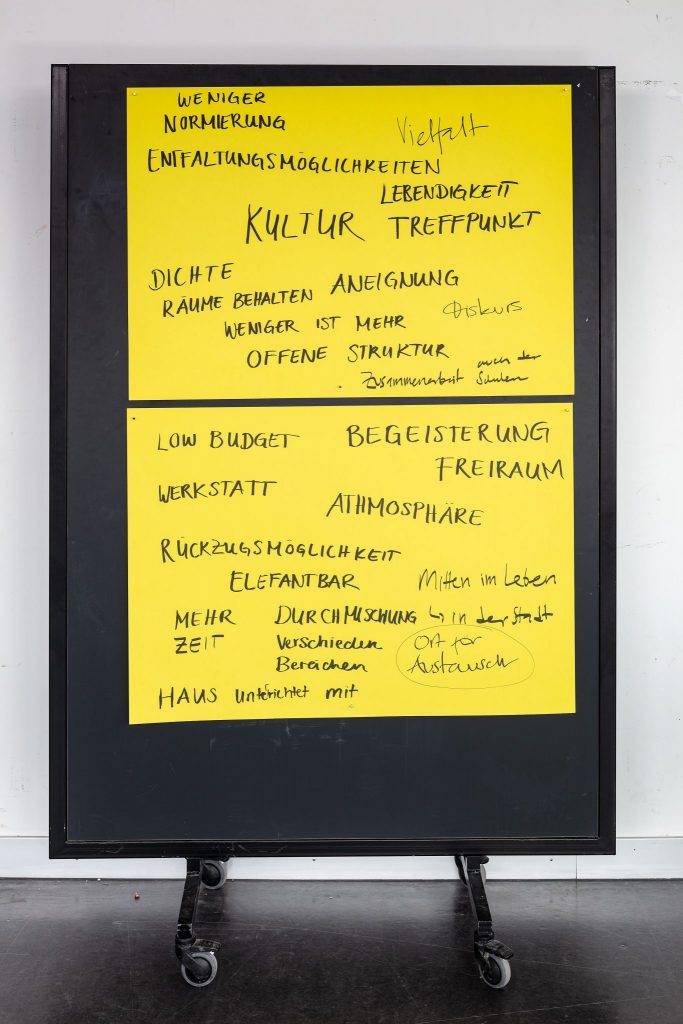 WENIGER
NORMIERUNG
Vielfalt
ENTFALTUNGSMÖGLICHKEITEN
LEBENDIGKEIT
KULTUR TREFFPUNKT
DICHTE
RÄUME BEHALTEN ANEIGNUNG
WENIGER IST MEHR
Diskurs
OFFENE STRUKTUR
Zusammenarbeit auch der Schulen
LOW BUDGET
BEGEISTERUNG
FREIRAUM
WERKSTATT
ATHMOSPHÄRE
RÜCKZUGSMÖGLICHKEIT
ELEFANTBAR
Mitten im Leben
↳ in der Stadt
MEHR
ZEIT
DURCHMISCHUNG
Verschieden
Bereichen
Ort für
Austausch
HAUS unterichtet mit